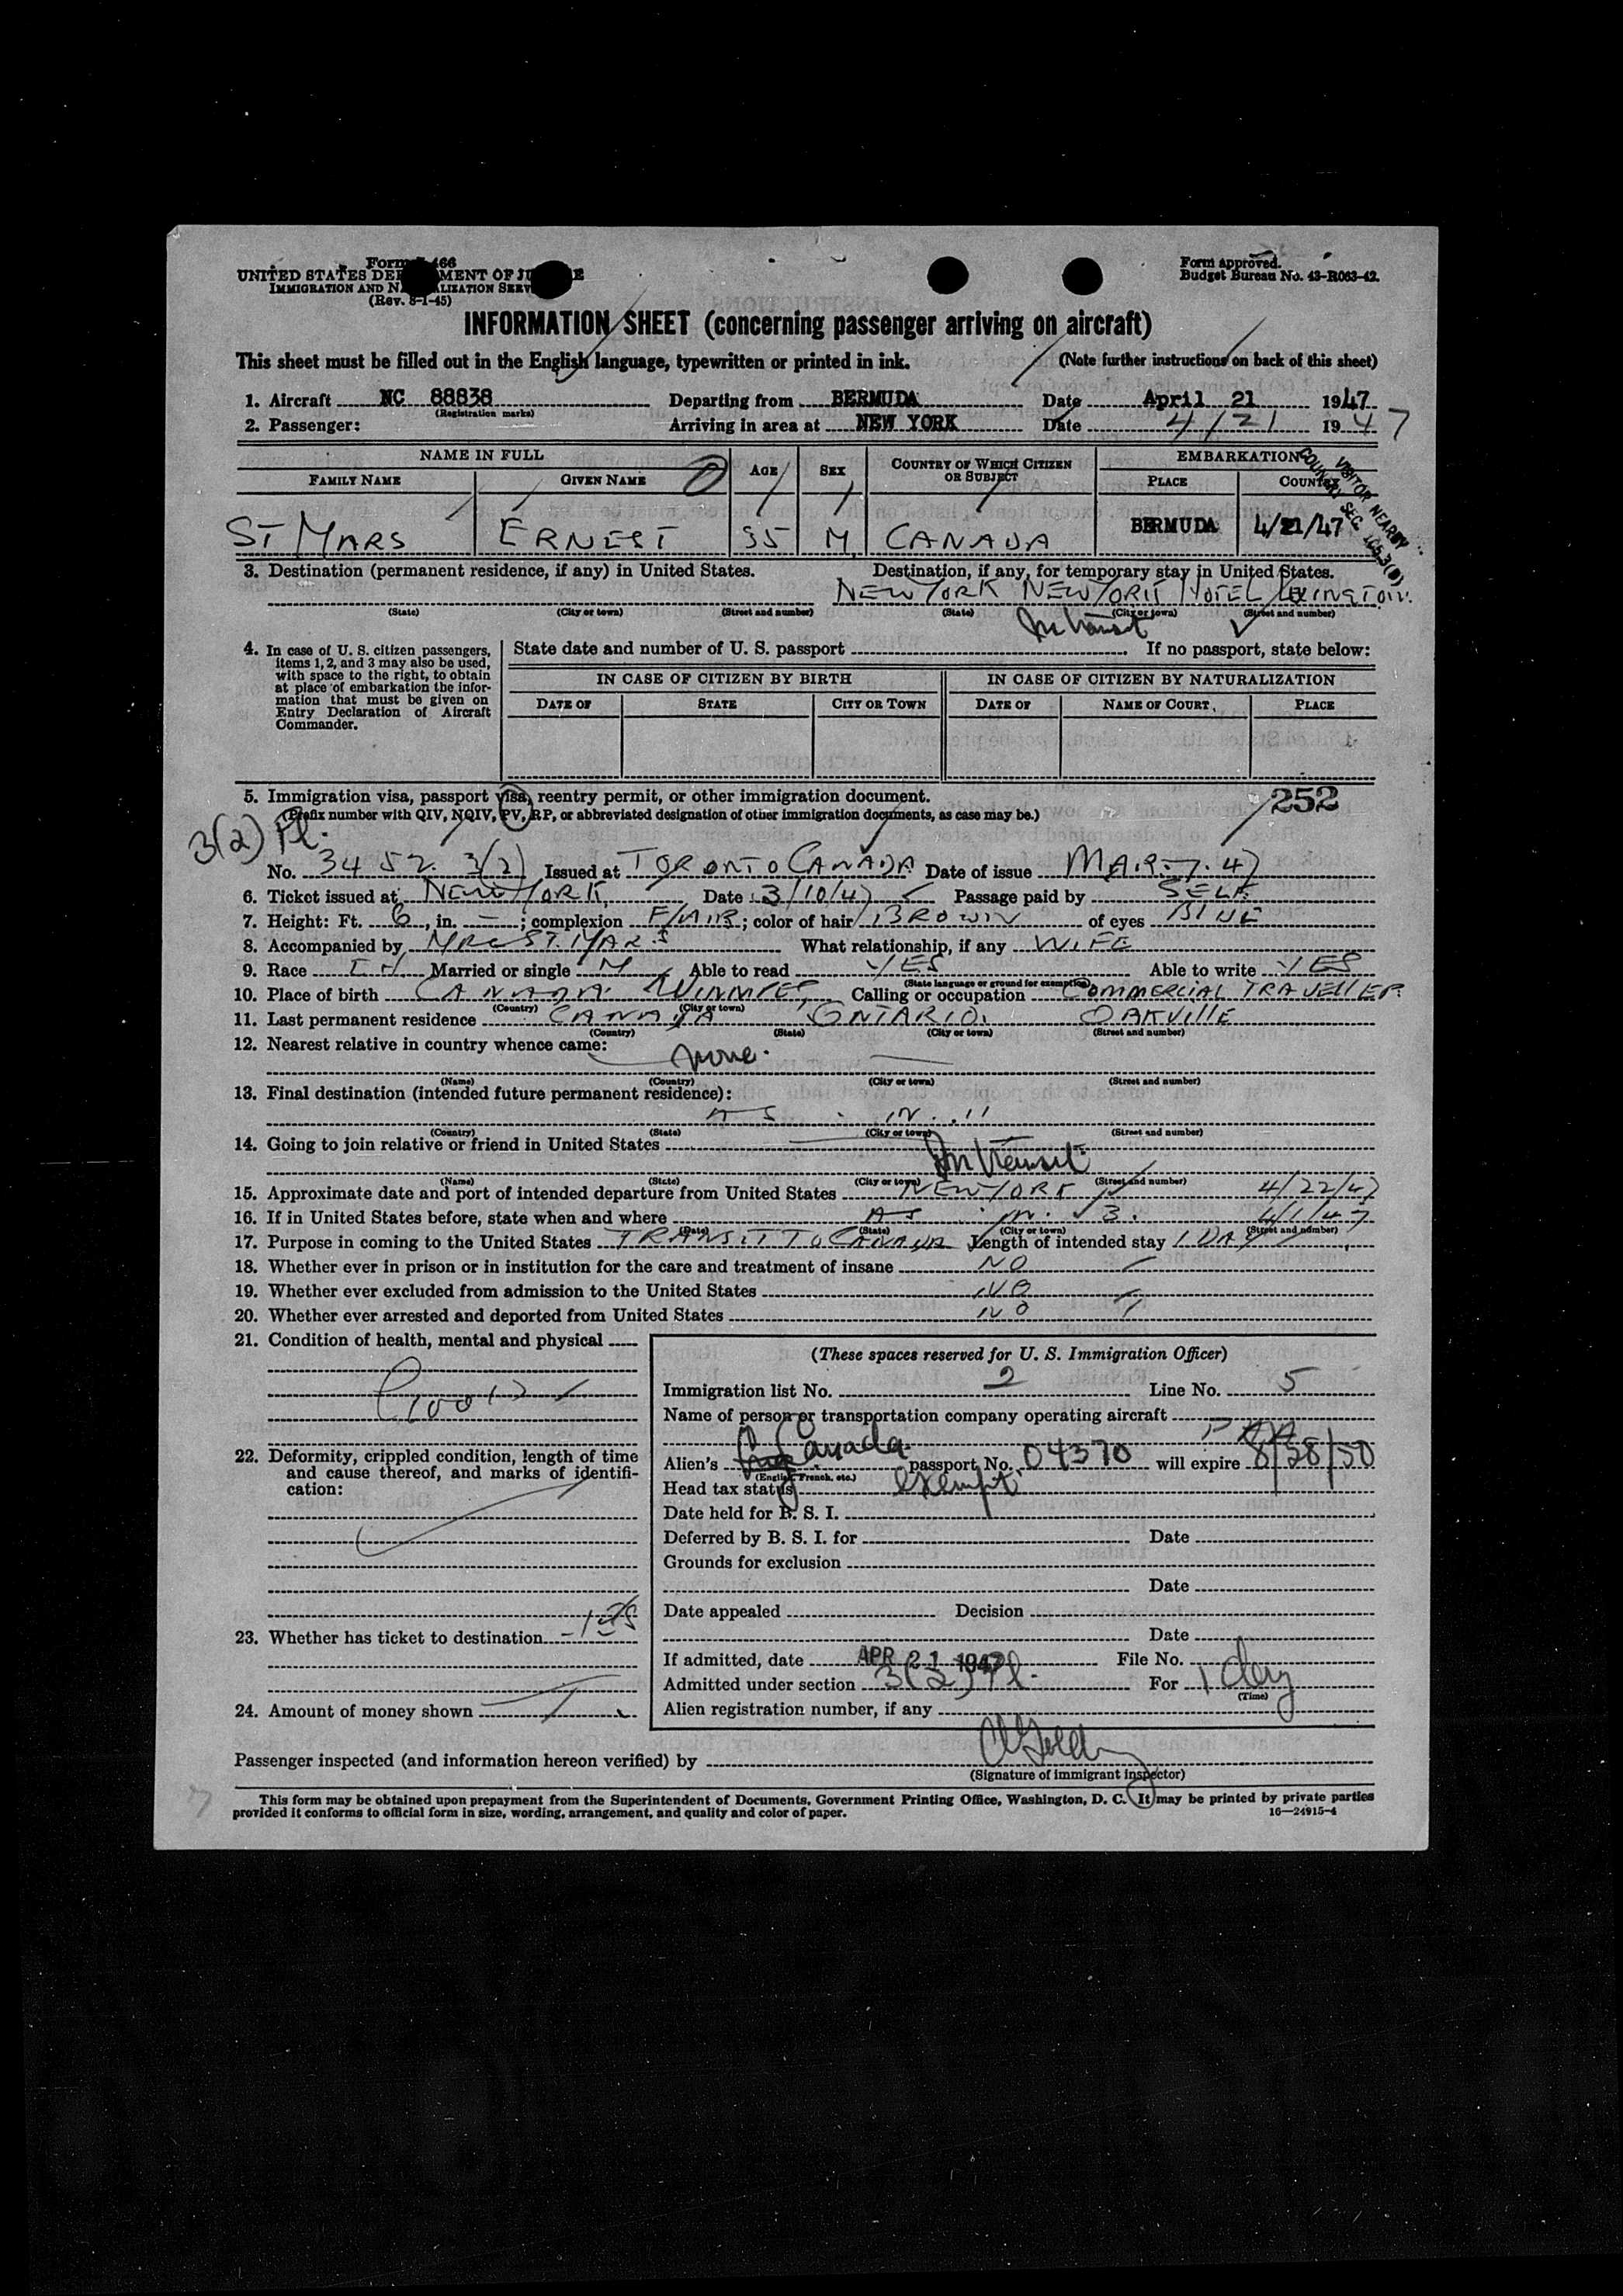 Form 466
UNITED STATES DEP MENT OF JU E
IMMIGRATION AND N ALIZATION SERV
(Rev. 8-1-45)
Form approved.
Budget Bureau No. 43-R063-42.
INFORMATION SHEET (concerning passenger arriving on aircraft)
This sheet must be filled out in the English language, typewritten or printed in ink. (Note further instructions on back of this sheet)
1. Aircraft NC 88838 Departing from BERMUDA Date April 21 1947
(Registration marks)
2. Passenger: Arriving in area at NEW YORK Date 4/21 1947
NAME IN FULL AGE SEX COUNTRY OF WHICH CITIZEN OR SUBJECT EMBARKATION
FAMILY NAME GIVEN NAME PLACE COUNTRY
VISITOR NEARBY
COUNTRY SEC.
ST MARS ERNEST 35 M CANADA BERMUDA 4/21/47
3. Destination (permanent residence, if any) in United States. Destination, if any, for temporary stay in United States.
NEW YORK NEW YORK HOTEL LEXINGTON.
(State) (City or town) (Street and number) (State) (City or town) (Street and number)
In transit
4. In case of U. S. citizen passengers, items 1, 2, and 3 may also be used, with space to the right, to obtain at place of embarkation the information that must be given on Entry Declaration of Aircraft Commander.
State date and number of U. S. passport If no passport, state below:
IN CASE OF CITIZEN BY BIRTH IN CASE OF CITIZEN BY NATURALIZATION
DATE OF STATE CITY OR TOWN DATE OF NAME OF COURT PLACE
5. Immigration visa, passport visa, reentry permit, or other immigration document. 252
(Prefix number with QIV, NQIV, PV, RP, or abbreviated designation of other immigration documents, as case may be.)
3(2) Pl.
No. 3452 3(2) Issued at TORONTO CANADA Date of issue MAR. 7. 47
6. Ticket issued at NEW YORK Date 3/10/47 Passage paid by SELF
7. Height: Ft. 6, in. —; complexion FAIR; color of hair BROWN of eyes BLUE
8. Accompanied by MRS ST. MARS What relationship, if any WIFE
9. Race Married or single M Able to read YES Able to write YES
(State language or ground for exemption)
10. Place of birth CANADA WINNIPEG Calling or occupation COMMERCIAL TRAVELLER
(Country) (City or town)
11. Last permanent residence CANADA ONTARIO. OAKVILLE
(Country) (State) (City or town) (Street and number)
12. Nearest relative in country whence came:
none.
(Name) (Country) (City or town) (Street and number)
13. Final destination (intended future permanent residence):
AS IN 11
(Country) (State) (City or town) (Street and number)
14. Going to join relative or friend in United States
In transit
(Name) (State) (City or town) (Street and number)
15. Approximate date and port of intended departure from United States NEW YORK 4/22/47
16. If in United States before, state when and where AS IN 3. 4/1/47
(Date) (State) (City or town) (Street and number)
17. Purpose in coming to the United States TRANSIT TO CANADA Length of intended stay 1 DAY
18. Whether ever in prison or in institution for the care and treatment of insane NO
19. Whether ever excluded from admission to the United States NO
20. Whether ever arrested and deported from United States NO
21. Condition of health, mental and physical
GOOD
22. Deformity, crippled condition, length of time and cause thereof, and marks of identification:
23. Whether has ticket to destination
24. Amount of money shown
(These spaces reserved for U. S. Immigration Officer)
Immigration list No. 2 Line No. 5
Name of person or transportation company operating aircraft
PAA
Alien's Canada passport No. 04370 will expire 8/28/50
(English, French, etc.)
Head tax status exempt
Date held for B. S. I.
Deferred by B. S. I. for Date
Grounds for exclusion
Date
Date appealed Decision
Date
If admitted, date APR 21 1947 File No.
Admitted under section 3(2) Pl. For 1 day
(Time)
Alien registration number, if any
Passenger inspected (and information hereon verified) by
(Signature of immigrant inspector)
This form may be obtained upon prepayment from the Superintendent of Documents, Government Printing Office, Washington, D. C. It may be printed by private parties
provided it conforms to official form in size, wording, arrangement, and quality and color of paper. 16—24915-4